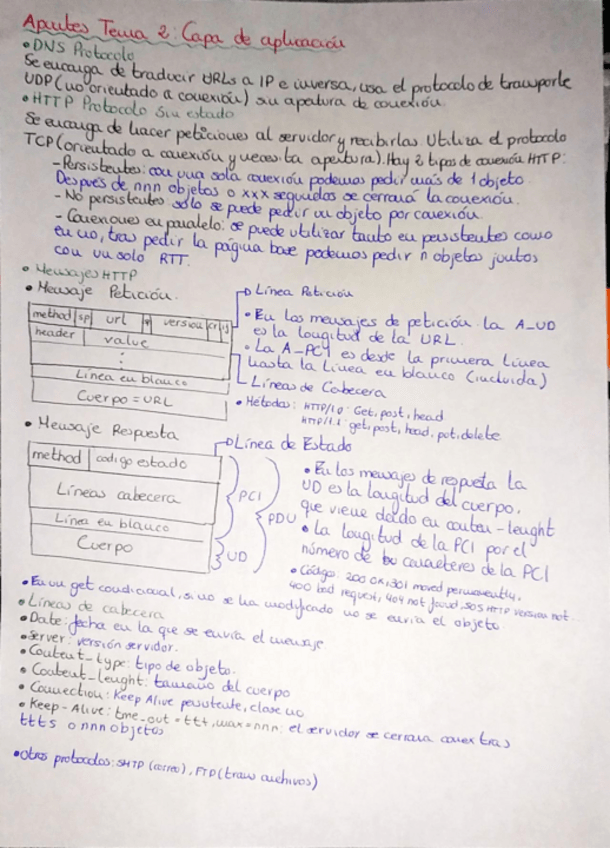 Apuntes Tema 2: Capa de aplicación
• DNS Protocolo
Se encarga de traducir URLs a IP e inversa, usa el protocolo de transporte
UDP (no orientado a conexión) sin apertura de conexión.
• HTTP Protocolo sin estado
Se encarga de hacer peticiones al servidor y recibirlas. Utiliza el protocolo
TCP (orientado a conexión y necesita apertura). Hay 2 tipos de conexión HTTP:
- Persistentes: con una sola conexión podemos pedir más de 1 objeto.
Después de nnn objetos o xxx segundos se cerrará la conexión.
- No persistentes sólo se puede pedir un objeto por conexión.
- Conexiones en paralelo: se puede utilizar tanto en persistentes como
en no, tras pedir la página base podemos pedir n objetos juntos
con un solo RTT.
• Mensajes HTTP
• Mensaje Petición.
method sp url version cr lf
header value
:
Línea en blanco
Cuerpo = URL
Línea Petición
• En los mensajes de petición la A_UD
es la longitud de la URL.
• La A_PCI es desde la primera línea
hasta la línea en blanco (incluida)
Líneas de Cabecera
• Métodos: HTTP/1.0 Get, post, head
HTTP/1.1 get, post, head, put, delete
• Mensaje Respuesta
method codigo estado
Líneas cabecera
Línea en blanco
Cuerpo
PCI
UD
PDU
Línea de Estado
• En los mensajes de respuesta la
UD es la longitud del cuerpo,
que viene dado en conten-lenght
• La longitud de la PCI por el
número de caracteres de la PCI
• Códigos: 200 OK, 301 moved permanently,
400 bad request, 404 not found, 505 HTTP version not...
• En un get condicional, si no se ha modificado no se envia el objeto
• Líneas de cabecera
• Date: fecha en la que se envía el mensaje
• Server: versión servidor.
• Content_type: tipo de objeto.
• Content_lenght: tamaño del cuerpo
• Connection: Keep Alive persistente, close no
• Keep-Alive: tme_out = ttt, max=nnn: el servidor se cerrara conex tras
ttts o nnn objetos
• Otros protocolos: SMTP (correo), FTP (trans archivos)